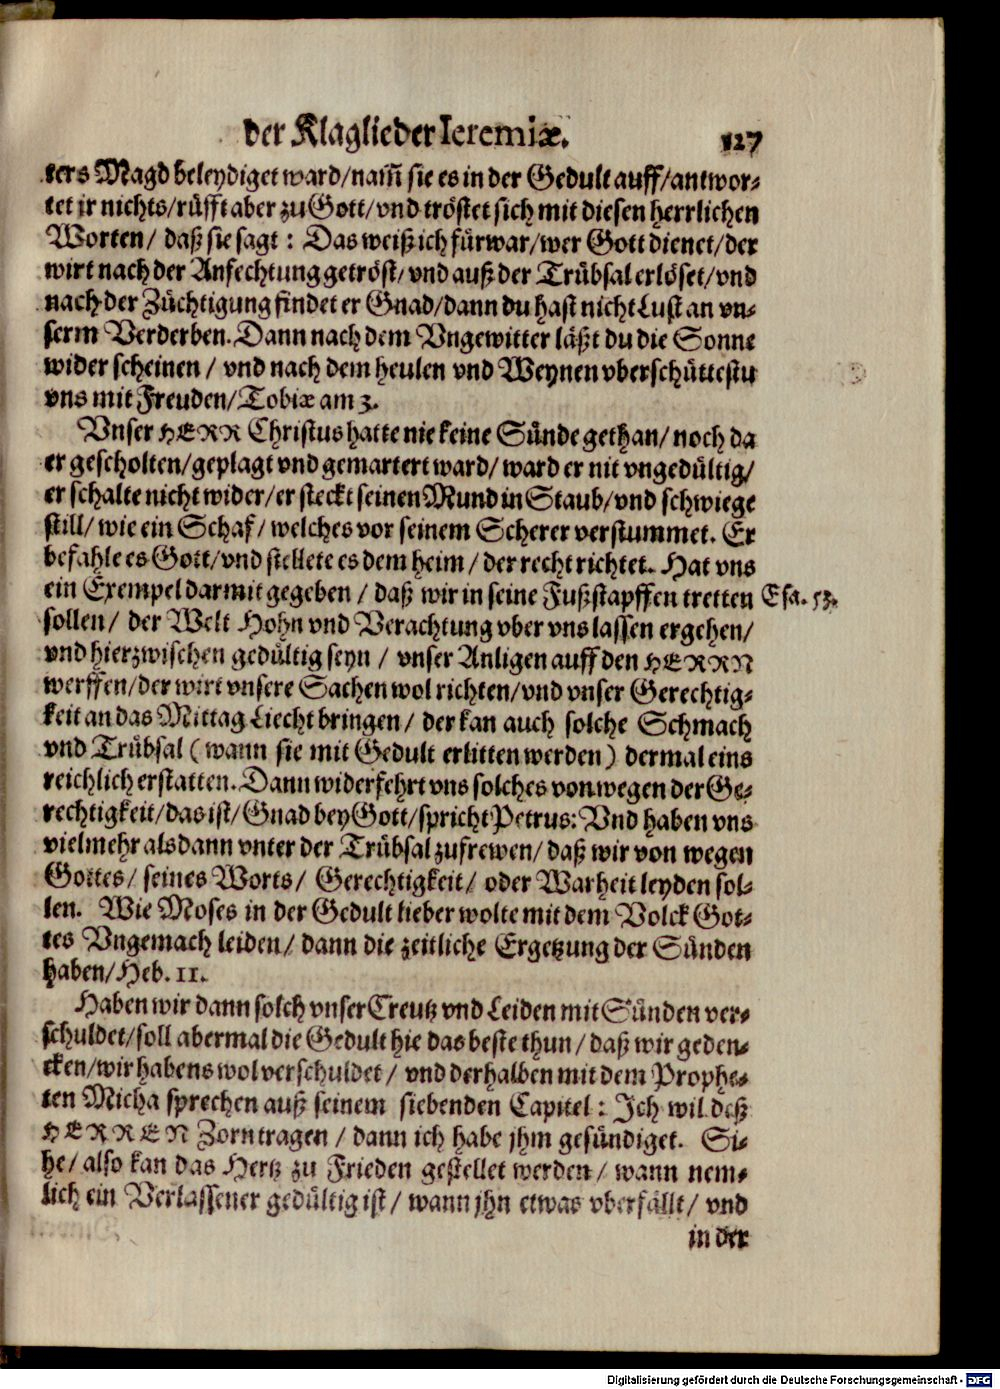 der Klaglieder Ieremiæ. 127
ters Magd beleydiget ward/nam̃ sie es in der Gedult auff/antwor-
tet jr nichts/rüfft aber zu Gott/vnd tröstet sich mit diesen herrlichen
Worten/ daß sie sagt : Das weiß ich fürwar/wer Gott dienet/der
wirt nach der Anfechtung getröst/vnd auß der Trübsal erlöset/vnd
nach der Züchtigung findet er Gnad/dann du hast nicht Lust an vn-
serm Verderben. Dann nach dem Vngewitter läßt du die Sonne
wider scheinen / vnd nach dem heulen vnd Weynen vberschüttestu
vns mit Freuden/Tobiæ am 3.
Vnser HERR Christus hatte nie keine Sünde gethan/noch da
er gescholten/geplagt vnd gemartert ward/ ward er nit vngedültig/
er schalte nicht wider/er steckt seinen Mund in Staub/vnd schwiege
still/ wie ein Schaf/ welches vor seinem Scherer verstummet. Er
befahle es Gott/vnd stellete es dem heim / der recht richtet. Hat vns
ein Exempel darmit gegeben / daß wir in seine Fußstapffen tretten Esa. 53.
sollen/ der Welt Hohn vnd Verachtung vber vns lassen ergehen/
vnd hierzwischen gedültig seyn / vnser Anligen auff den HERRN
werffen/der wirt vnsere Sachen wol richten/vnd vnser Gerechtig-
keit an das Mittag Liecht bringen/ der kan auch solche Schmach
vnd Trübsal (wann sie mit Gedult erlitten werden) dermal eins
reichlich erstatten. Dann widerfehrt vns solches von wegen der Ge-
rechtigkeit/das ist/Gnad bey Gott/spricht Petrus: Vnd haben vns
vielmehr alsdann vnter der Trübsal zufrewen/ daß wir von wegen
Gottes/ seines Worts/ Gerechtigkeit/ oder Warheit leyden sol-
len. Wie Moses in der Gedult lieber wolte mit dem Volck Got-
tes Vngemach leiden/ dann die zeitliche Ergetzung der Sünden
haben/Heb. 11.
Haben wir dann solch vnser Creutz vnd Leiden mit Sünden ver-
schuldet/soll abermal die Gedult hie das beste thun/ daß wir geden-
cken/wir habens wol verschuldet/ vnd derhalben mit dem Prophe-
ten Micha sprechen auß seinem siebenden Capitel: Ich wil deß
HERREN Zorn tragen / dann ich habe jhm gesündiget. Si-
he/ also kan das Hertz zu Frieden gestellet werden/ wann nem-
lich ein Verlassener gedültig ist/ wann jhn etwas vberfällt/ vnd
in der
Digitalisierung gefördert durch die Deutsche Forschungsgemeinschaft - DFG